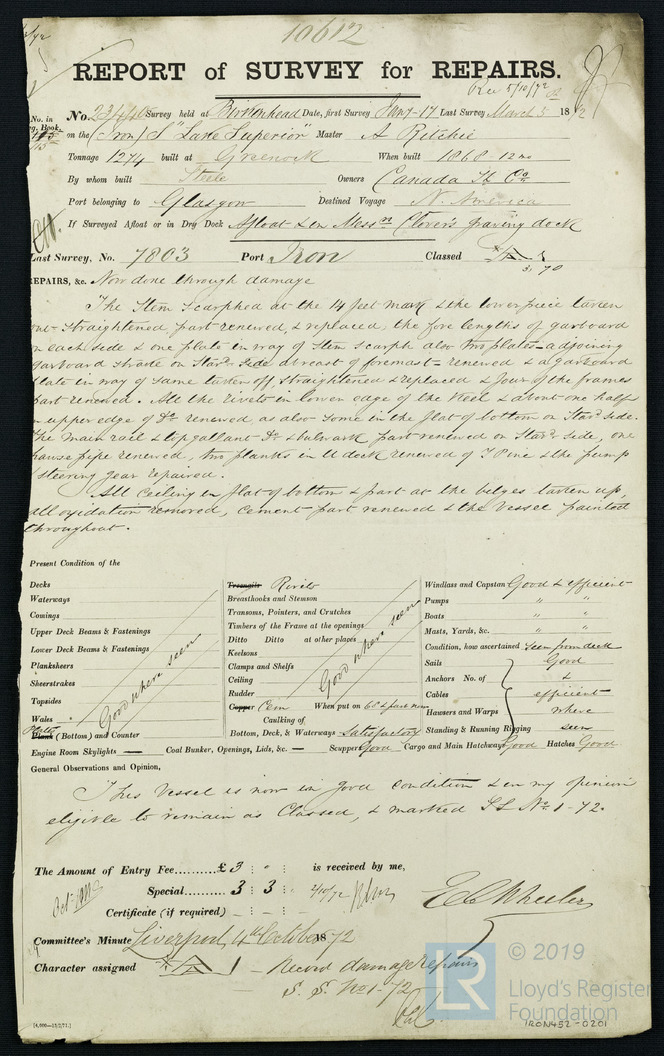 10612
REPORT of SURVEY for REPAIRS.
Rec 5/10/72
No. in Reg. Book.
No. Survey held at Birkenhead Date, first Survey Jany-17 Last Survey March 5 1872
on the (Iron) S "Lake Superior" Master A Ritchie
Tonnage 1274 built at Greenock When built 1868-12 mo
By whom built Steele Owners Canada Sh Co
Port belonging to Glasgow Destined Voyage N. America
If Surveyed Afloat or in Dry Dock Afloat & in Messrs Clover's graving dock
Last Survey, No. 7803 Port Iron Classed
REPAIRS, &c. Now done through damage
The Stem Scarphed at the 14 feet mark & the lower piece taken
out straightened, part renewed, & replaced, the fore lengths of garboard
on each side & one plate in way of Stem Scarph also two plates adjoining
garboard strake on Starbd side abreast of foremast - renewed & a garboard
plate in way of same taken off, straightened & replaced & four of the frames
part renewed. All the rivets in lower edge of the Keel & about one half
in upper edge of Do renewed as also some in the flat of bottom on Starbd side.
The main rail & topgallant Do & bulwark part renewed on Starbd side, one
hawse pipe renewed, two planks in U deck renewed of Y Pine & the pump
& steering gear repaired.
All Ceiling in flat of bottom & part at the bilges taken up,
all oxydation removed, cement part renewed & the Vessel painted
throughout.
Present Condition of the
Decks
Waterways
Comings
Upper Deck Beams & Fastenings
Lower Deck Beams & Fastenings
Planksheers
Sheerstrakes
Topsides
Wales
Good where seen
Plates
Plank (Bottom) and Counter
Engine Room Skylights — Coal Bunker, Openings, Lids, &c. — Scuppers Good Cargo and Main Hatchways Good Hatches Good
Treenails Rivets
Breasthooks and Stemson
Transoms, Pointers, and Crutches
Timbers of the Frame at the openings
Ditto Ditto at other places
Keelsons
Clamps and Shelfs
Ceiling
Rudder
Good where seen
Copper Cem When put on 68 & part now
Caulking of
Bottom, Deck, & Waterways Satisfactory
Windlass and Capstan Good & efficient
Pumps " "
Boats " "
Masts, Yards, &c. " "
Condition, how ascertained Seen from deck
Sails Good
Anchors No. of &
Cables efficient
Hawsers and Warps where
Standing & Running Rigging seen
General Observations and Opinion,
This Vessel is now in good condition & in my opinion
eligible to remain as Classed, & marked S S No 1-72.
The Amount of Entry Fee......... £3 : " : is received by me,
Special......... 3 : 3 : 2/10/72
Certificate (if required)
E C Wheeler
Committee's Minute Liverpool 4th October 1872
Character assigned A 1 - Record damage Repairs
S. S. No 1-72
[4,000—13/2/71.]
LR
© 2019
Lloyd's Register
Foundation
IRON452-0201